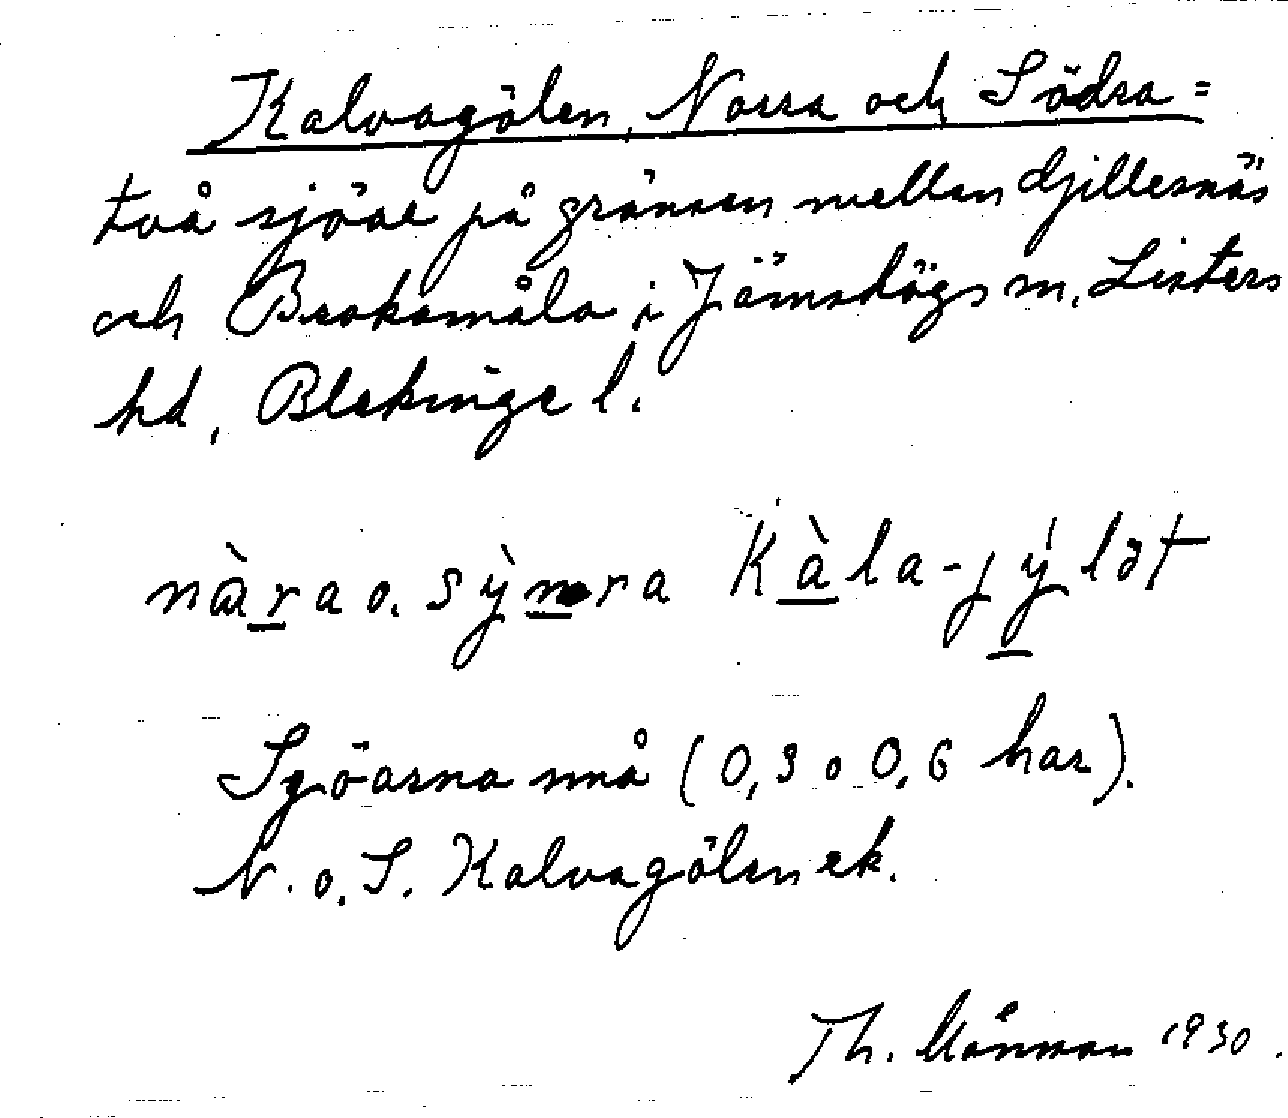 Kalvagölen, Norra och Södra =
två sjöar på gränsen mellan Gjillesnäs
och Brokamåla i Jämshögs sn, Listers
hd, Blekinge l.
nàra o. sỳnra Kàla-jýlət
Sjöarna små (0,3 o 0,6 har).
N. o. S. Kalvagölen ek.
Th. Månman 1930.